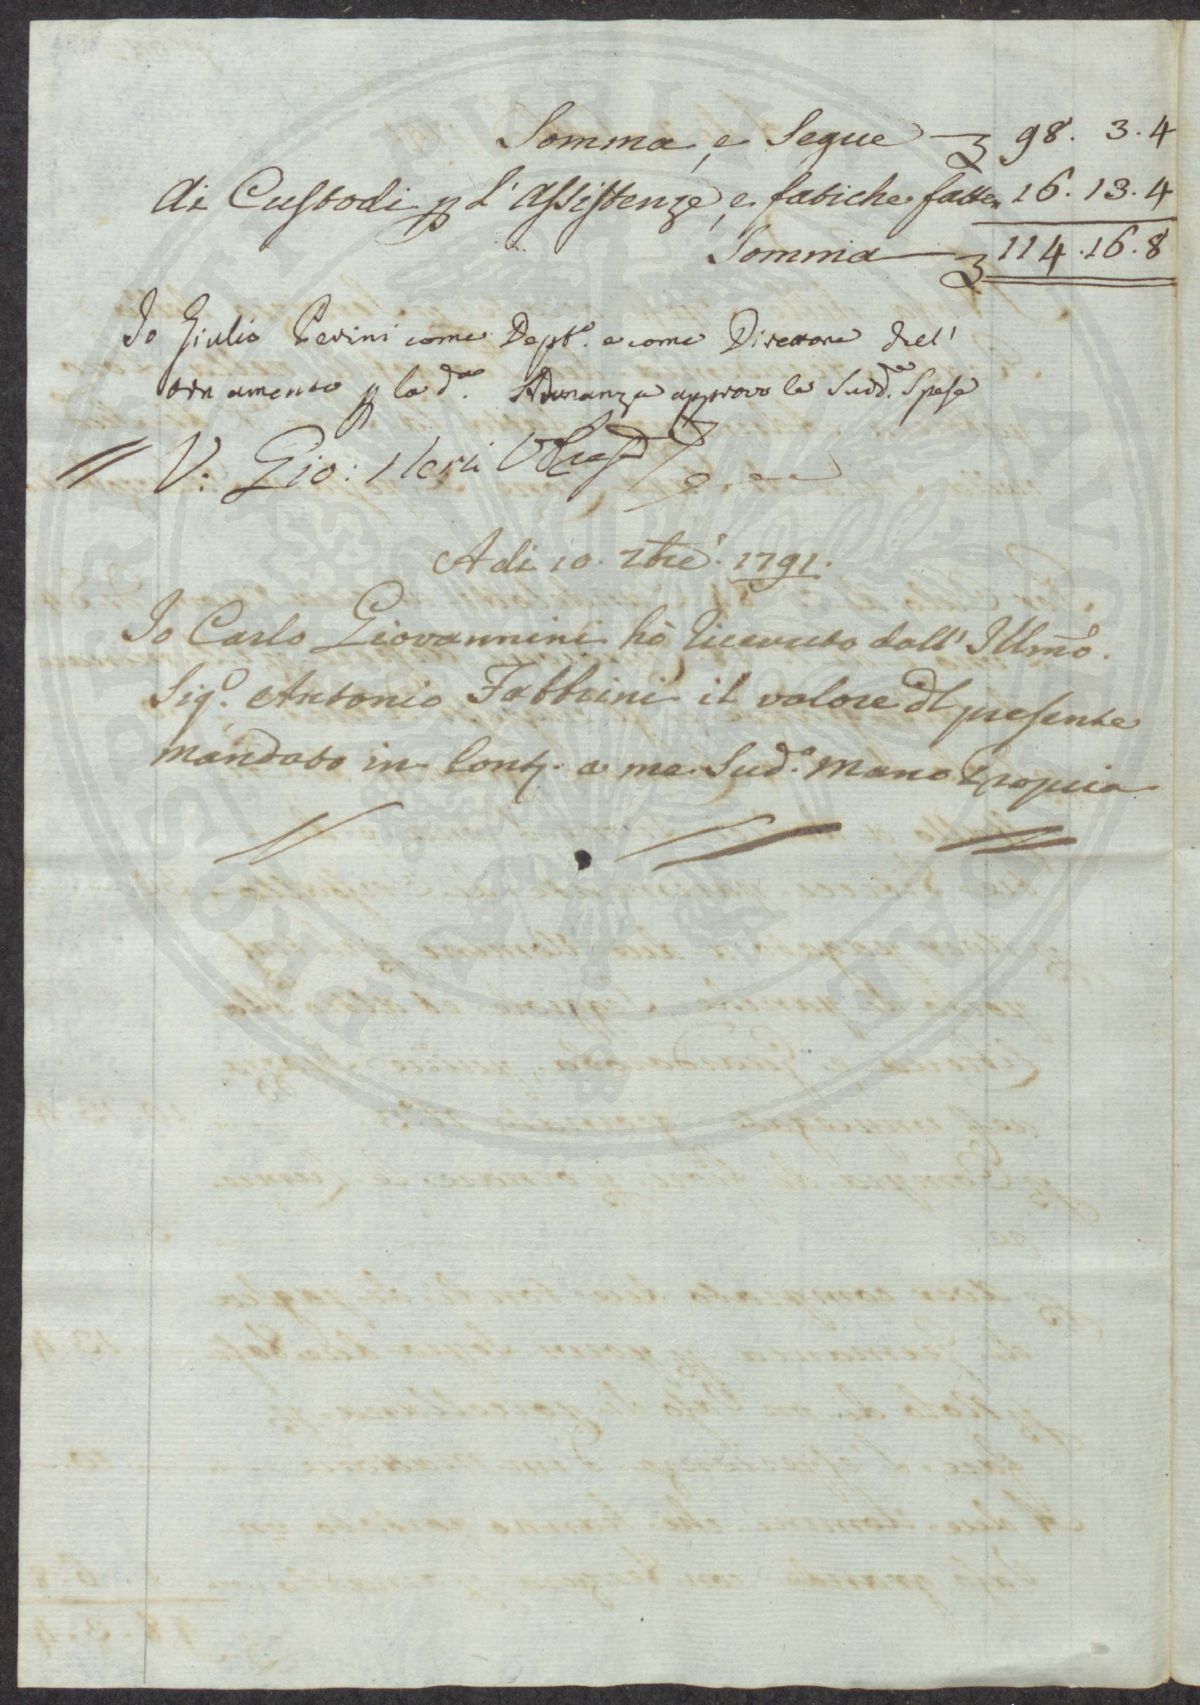 Somma, e Segue — 98. 3. 4
Ai Custodi p L' Assistenze, e fatiche fatte 16. 13. 4
Somma — 114. 16. 8
Io Giulio Perini come Dept.º e come Direttore dell'
ornamento p la d.ª Adunanza approvo le Sudd.e Spese
V: Gio: Neri
Adi 10. 7bre. 1791.
Io Carlo Giovannini hò Ricevuto dall' Illmo.
Sig.º Antonio Fabbrini il valore dl presente
mandato in Contj. a me Sud.º Mano Propria